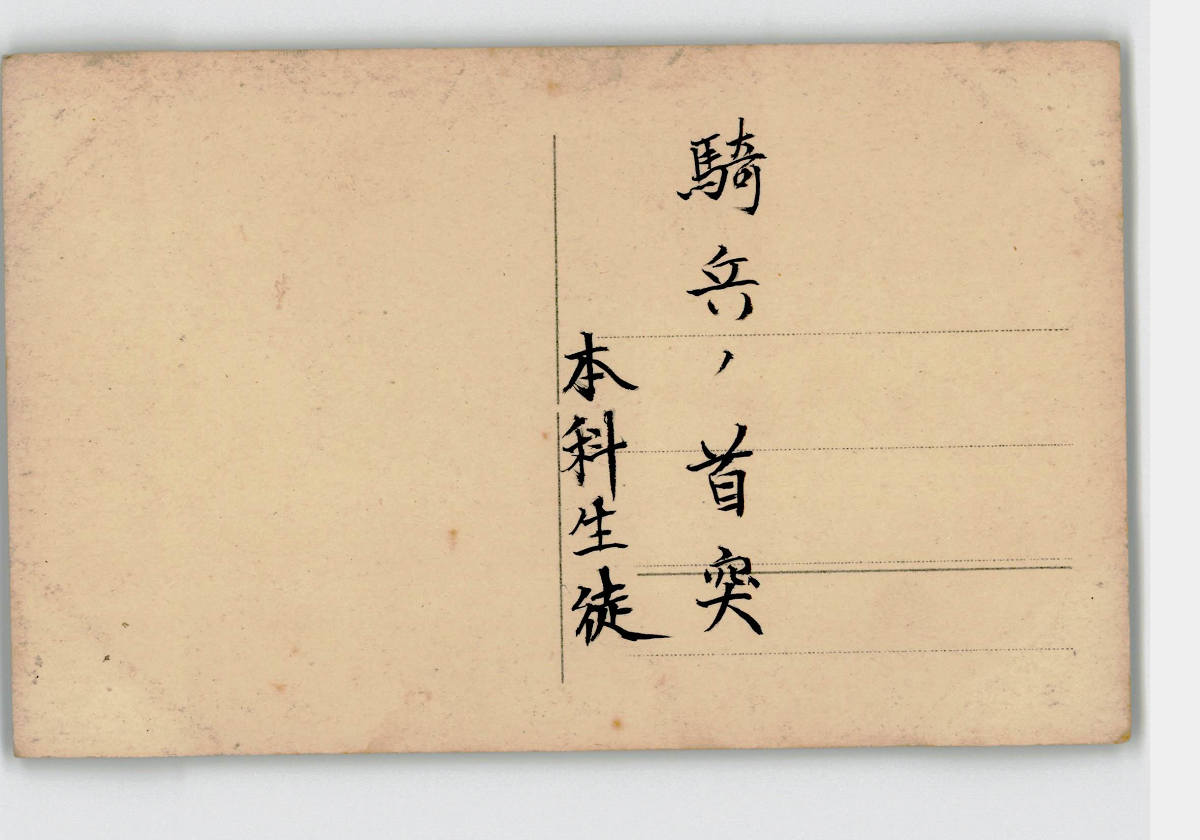 騎兵ノ首突
本科生徒